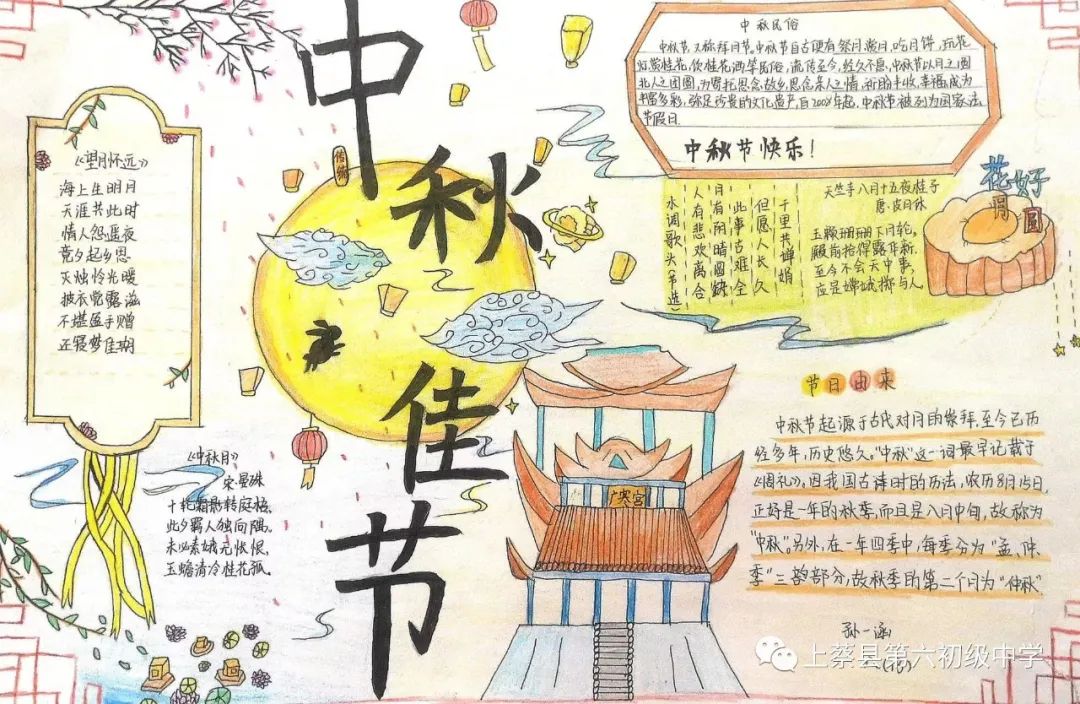 中秋佳节
传统
《望月怀远》
海上生明月
天涯共此时
情人怨遥夜
竟夕起相思
灭烛怜光
披衣觉露滋
不堪盈手赠
还寝梦佳期
《中秋月》
宋·晏殊
十轮霜影转庭梧,
此夕羁人独向隅。
未必素娥无怅恨,
玉蟾清冷桂花孤。
中秋民俗
中秋节,又称拜月节。中秋节自古便有祭月、赏月、吃月饼、玩花
灯、赏桂花、饮桂花酒等民俗,流传至今,经久不息。中秋节以月之圆
兆人之团圆,为寄托思念故乡,思念亲人之情,祈盼丰收、幸福,成为
丰富多彩、弥足珍贵的文化遗产,自2008年起,中秋节被列为国家法
节假日
中秋节快乐!
水调歌头(节选)
人有悲欢离合
月有阴晴圆缺
此事古难全
但愿人长久
千里共婵娟
天竺寺八月十五夜桂子
唐·皮日休
玉颗珊珊下月轮,
殿前拾得露华新。
至今不会天中事,
应是嫦娥掷与人
花好
月圆
节日由来
中秋节起源于古代对月的崇拜,至今已历
经多年,历史悠久。"中秋"这一词最早记载于
《周礼》。因我国古时的历法,农历8月15日,
正好是一年的秋季,而且是八月中旬,故称为
"中秋"。另外,在一年四季中,每季分为"孟、仲、
季"三部分,故秋季的第二个月为"仲秋".
广寒宫
孙一涵
上蔡县第六初级中学